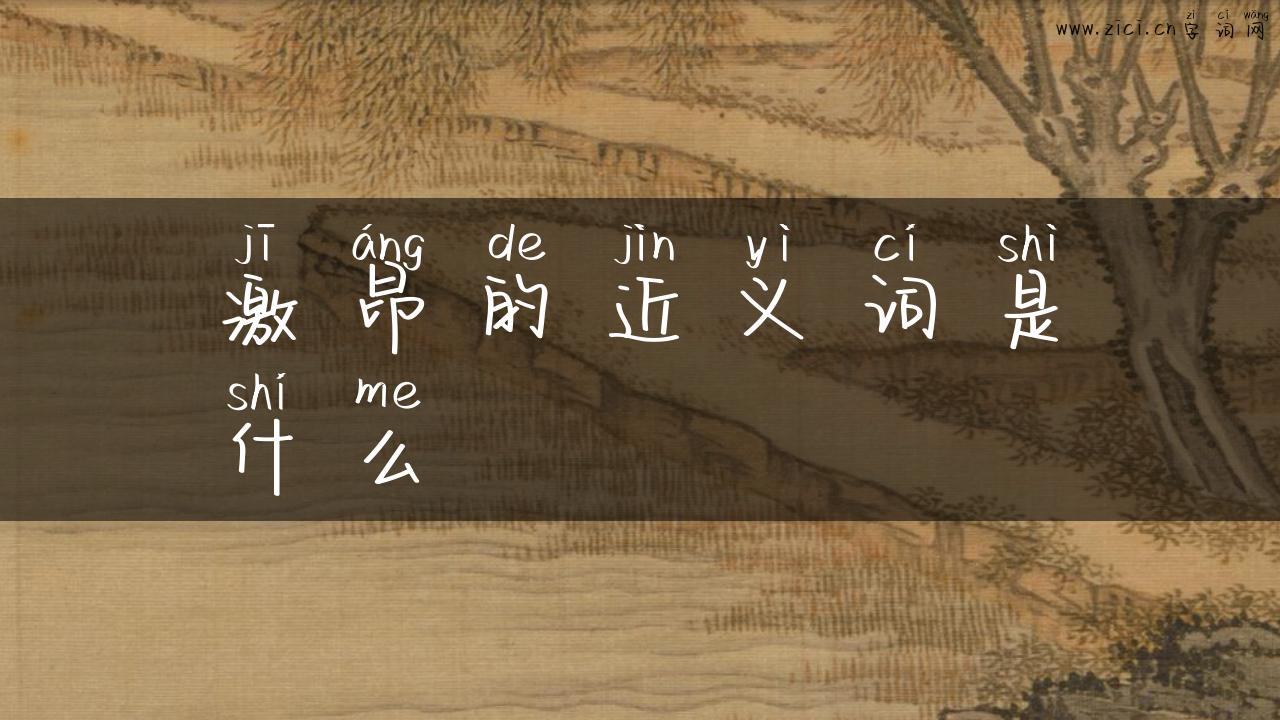 zì cí wǎng
www.zici.cn字词网
jī áng de jìn yì cí shì
激昂的近义词是
shí me
什么